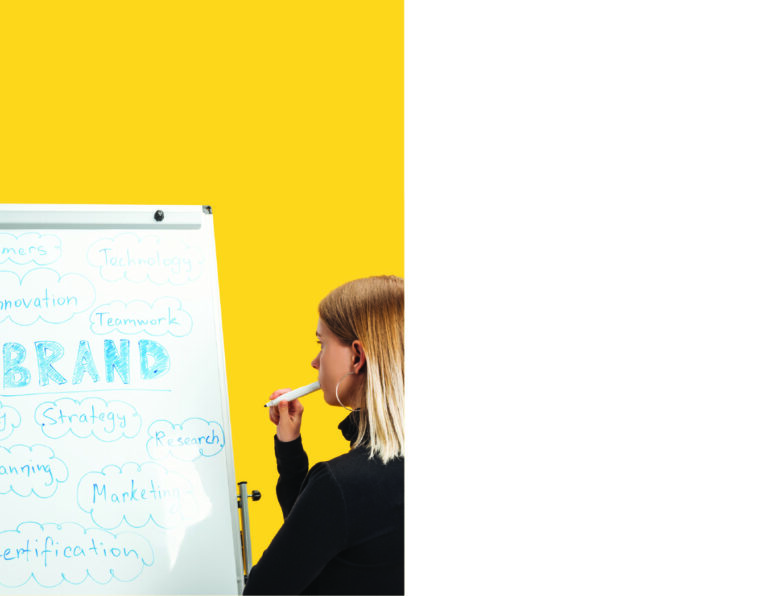 mers
Technology
nnovation
Teamwork
BRAND
y
Strategy
Research
anning
Marketing
ertification